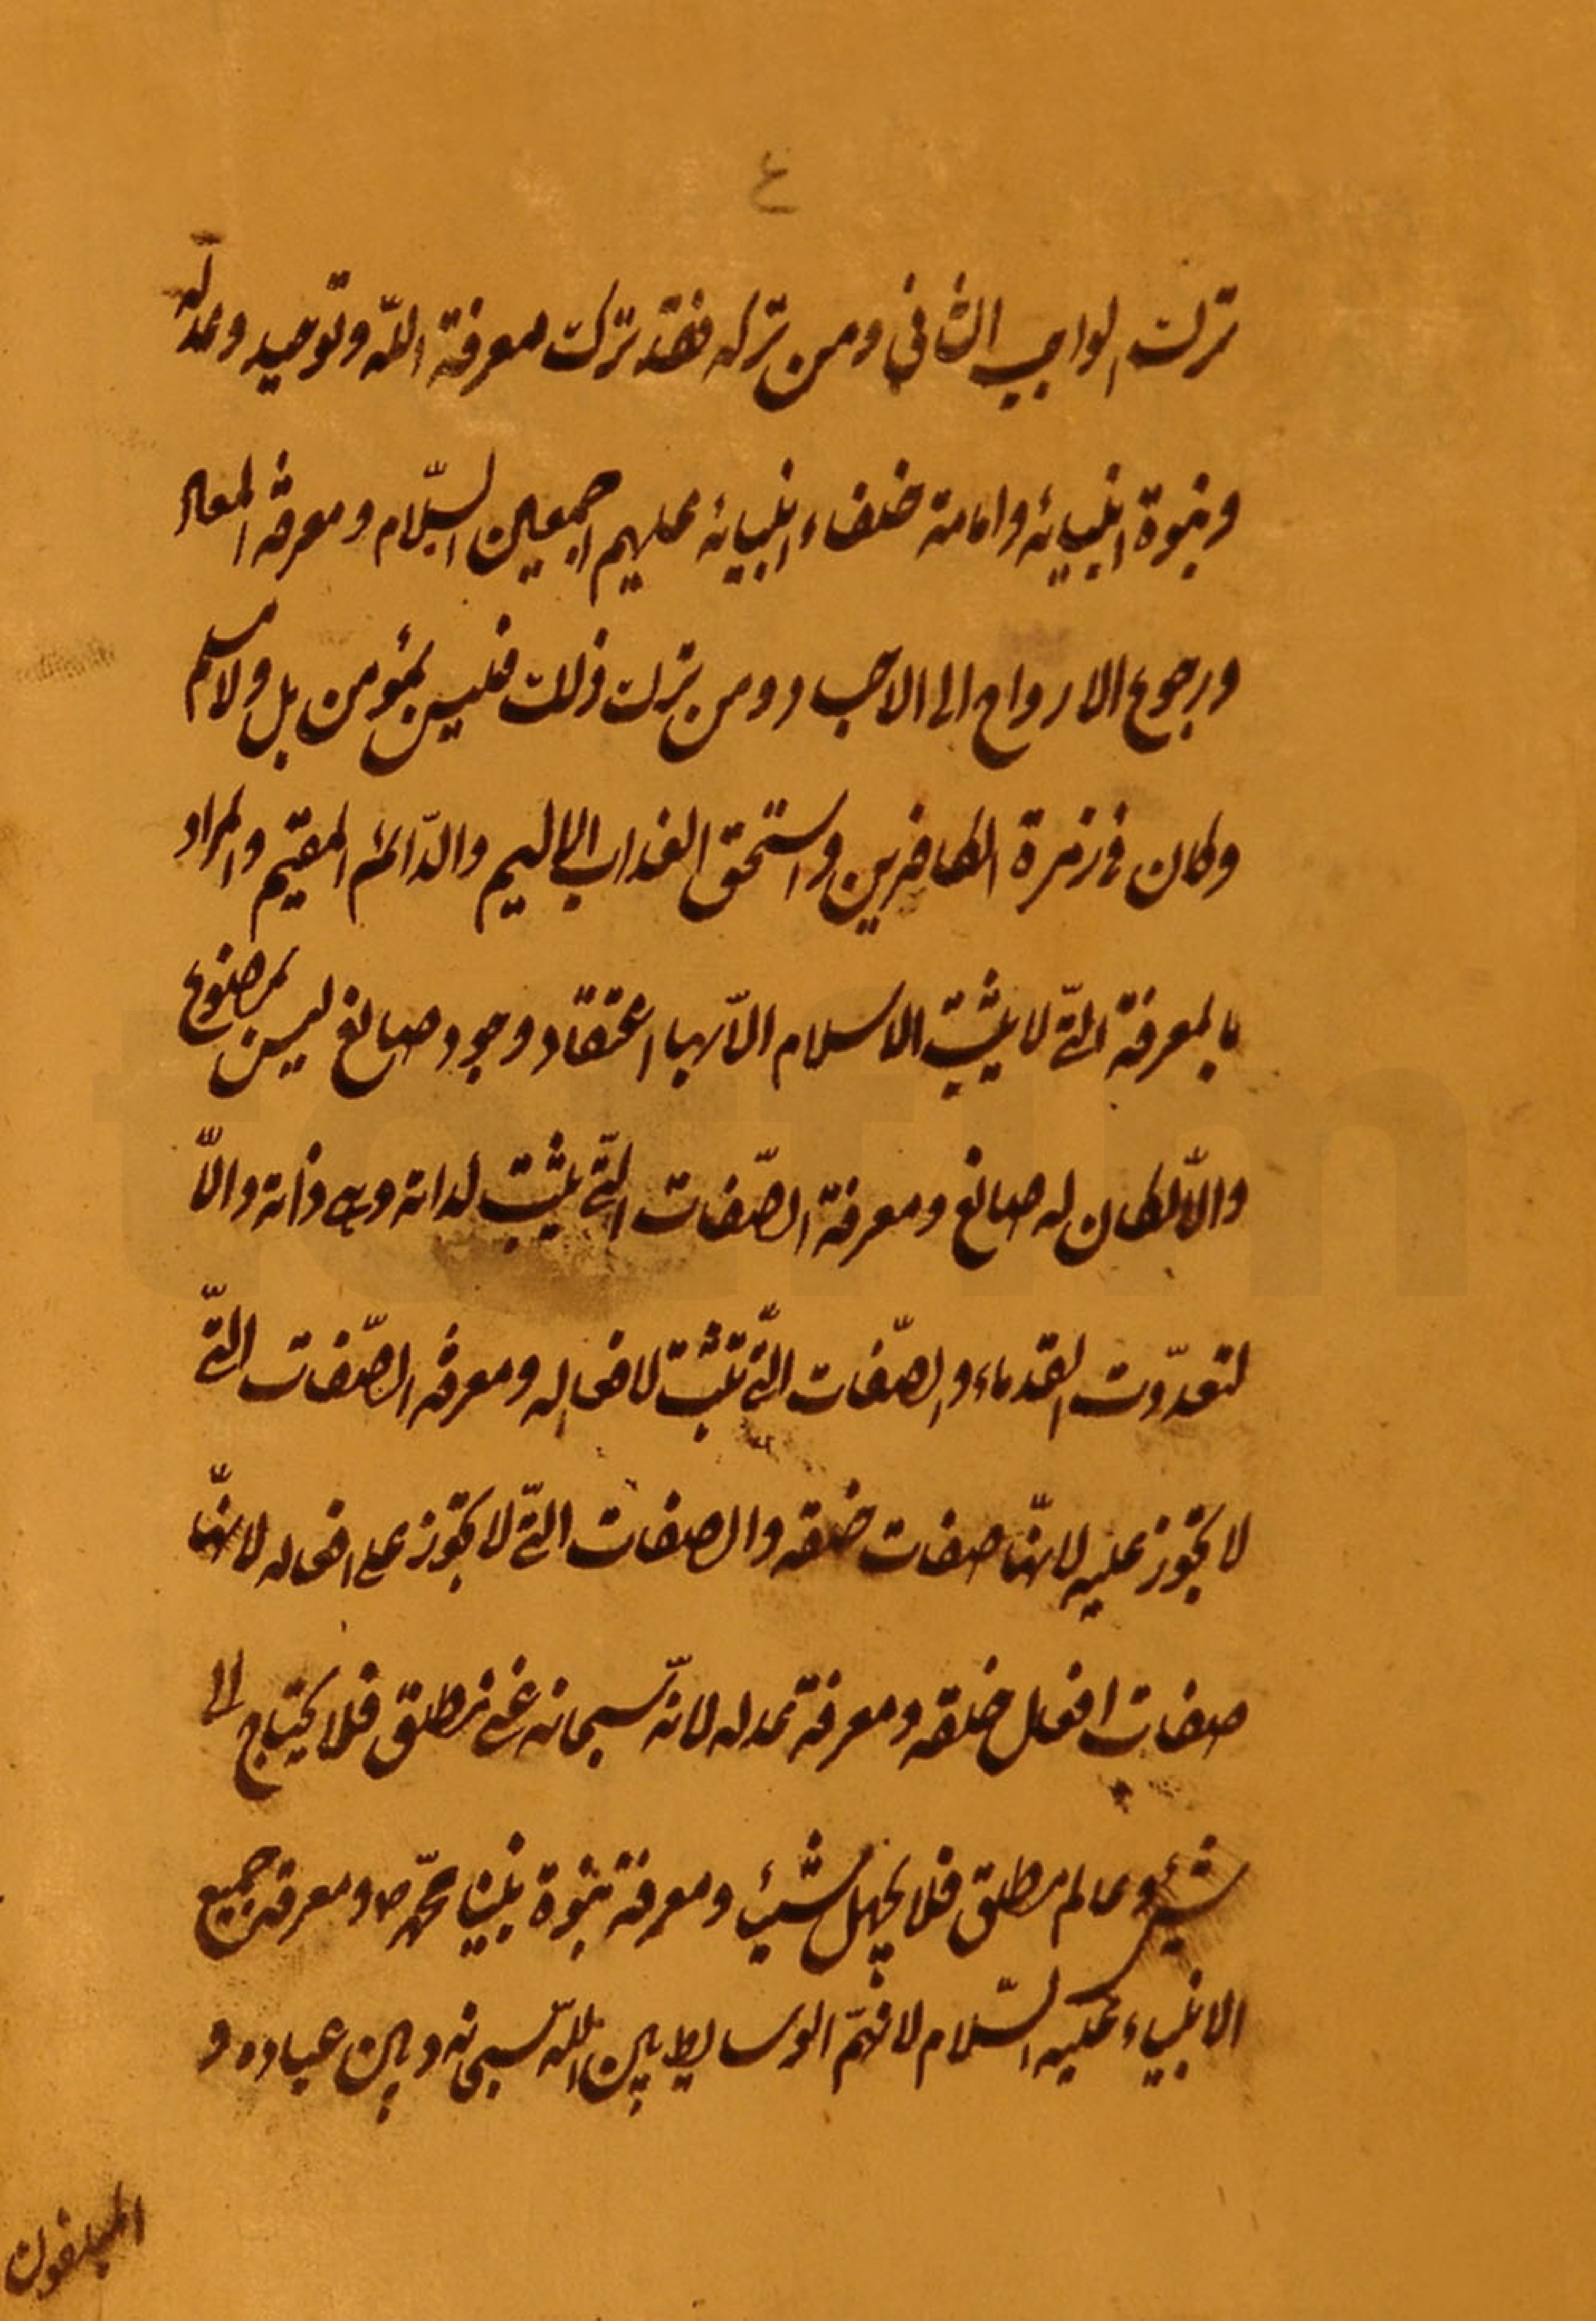 ٤
ترك الواجب الثاني ومن تركه فقد ترك معرفة اللّه وتوحيده وعدله
ونبوة انبيائه وامامة خلفاء انبيائه عليهم اجمعين السّلام ومعرفة المعاد
ورجوع الارواح الى الاجساد ومن ترك ذلك فليس بمؤمن بل ولا مسلم
وكان في زمرة الكافرين واستحق العذاب الاليم والدّائم المقيم والمراد
بالمعرفة التّي لا يثبت الاسلام الاّ بها اعتقاد وجود صانع ليس بمصنوع
والاّ لكان له صانع ومعرفة الصّفات التّي يثبت لذاته وهي ذاته والاّ
لتعدّدت القدماء والصّفات التّي تثبت لافعاله ومعرفة الصّفات التّي
لا تجوز عليه لانهّا صفات خلقه والصفات التّي لا تجوز على افعاله لانهّا
صفات افعال خلقه ومعرفة عدله لانّه سبحانه غني مطلق فلا يحتاج الى
شيئ وعالم مطلق فلا يجهل شيئ ومعرفة نبوة نبينا محمّد ص ومعرفة جميع
الانبياء عليه السّلام لانهمّ الوسايط بين اللّه سبحانه وبين عباده و
المبلغون
totfim